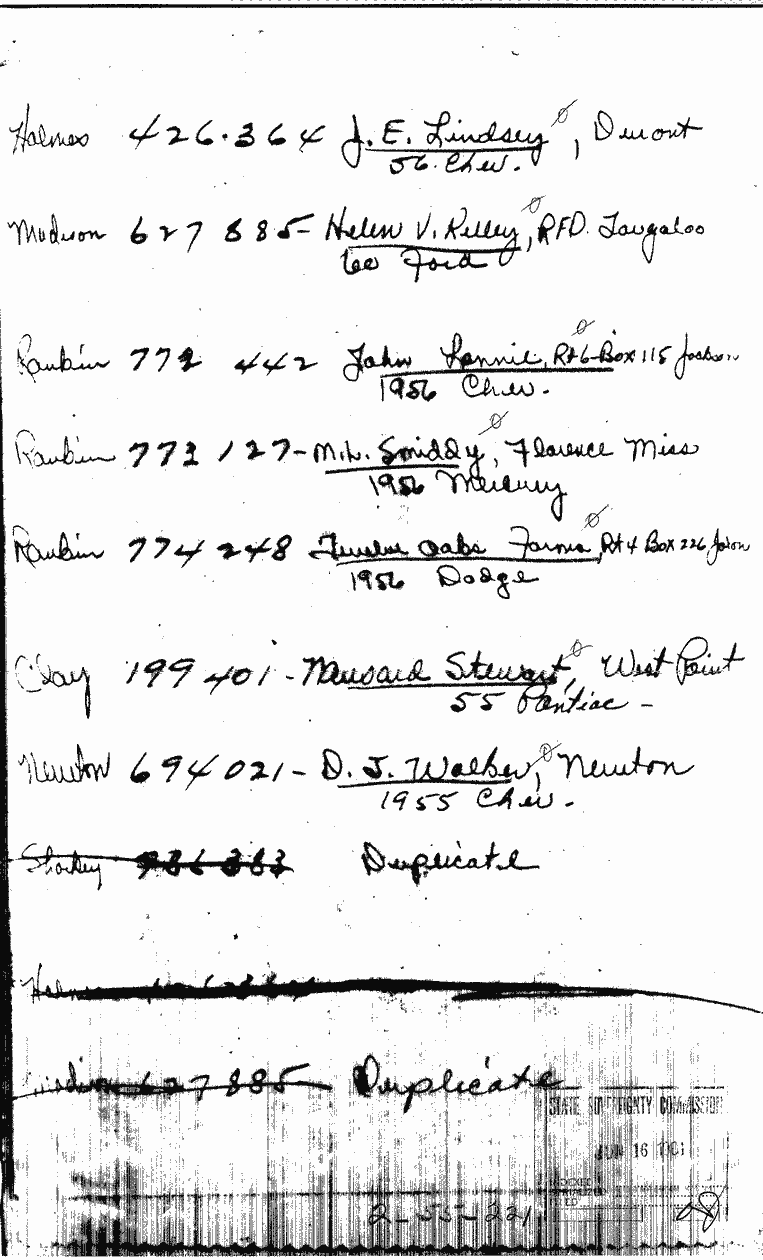 Holmes 426-364 J. E. Lindsey, Durant
56 Chev.
Madison 627 885- Helen V. Kelley, RFD. Tougaloo
60 Ford
Rankin 772 442 John Lonnie, Rt 6-Box 115 Jackson
1956 Chev.
Rankin 773 127- M.L. Smiddy, Florence Miss
1956 Mercury
Rankin 774 248 Twelve Oaks Farms, Rt 4 Box 226 Jxson
1956 Dodge
Clay 199 401 - Stewart, West Point
55 Pontiac -
Newton 694 021- D. J. Walker, Newton
1955 Chev.
Sharkey 383 Duplicate
Holmes
Madison 627 885 Duplicate
STATE SOVEREIGNTY COMMISSION
JUN 16 1961
2-55-221